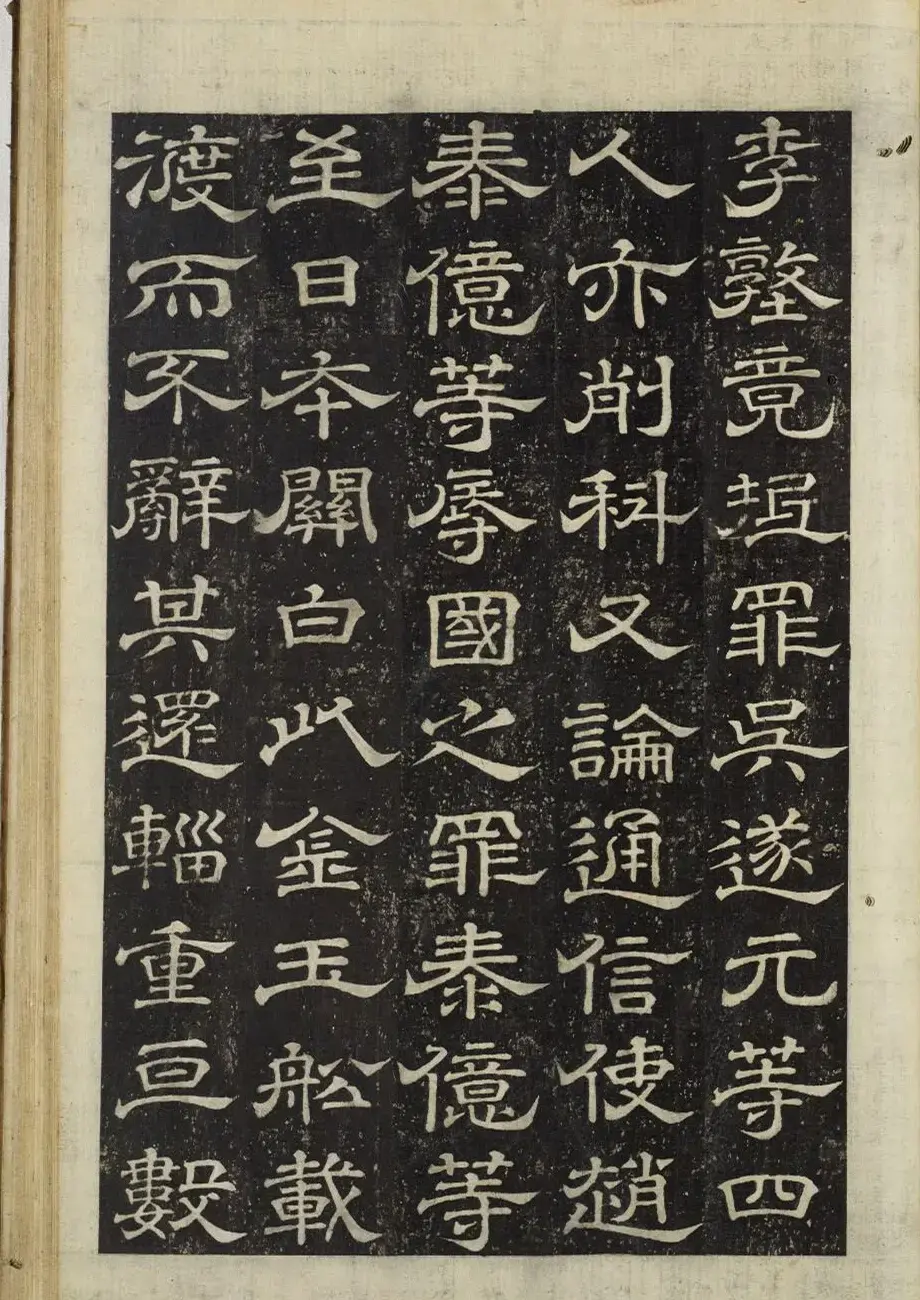 李墪竟坐罪吳遂元等四
人亦削科又論通信使趙
泰億等辱國之罪泰億等
至日本關白此金玉舩載
渡而不辭其還輜重亘數